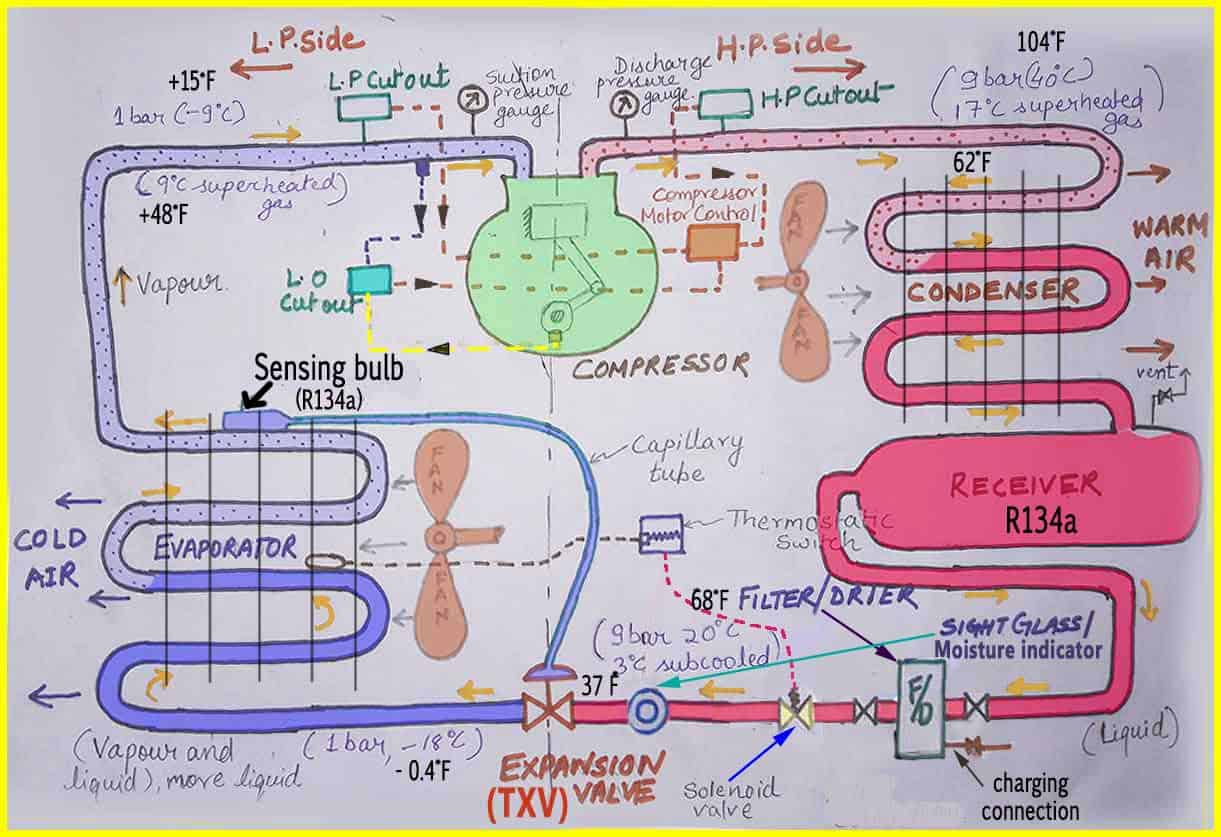 L.P.Side
H.P.Side
104°F
+15°F
L.P Cutout
Suction
pressure
gauge
Discharge
pressure
gauge.
H.P Cutout
(9bar(40°C)
17°C superheated)
gas
1 bar (-9°C)
(9°C superheated)
gas
+48°F
62°F
Compressor
Motor Control
FAN
FAN
WARM
AIR
Vapour.
L.O
Cut out
CONDENSER
COMPRESSOR
vent
Sensing bulb
(R134a)
Capillary
tube
FAN
FAN
RECEIVER
R134a
Thermostatic
Switch
COLD
AIR
EVAPORATOR
68°F
FILTER/DRIER
SIGHT GLASS/
Moisture indicator
(9bar 20°C
3°C subcooled)
37 F
F/D
(Liquid)
(Vapour and
liquid), more liquid
(1bar, -18°C)
- 0.4°F
EXPANSION
VALVE
(TXV)
Solenoid
valve
charging
connection